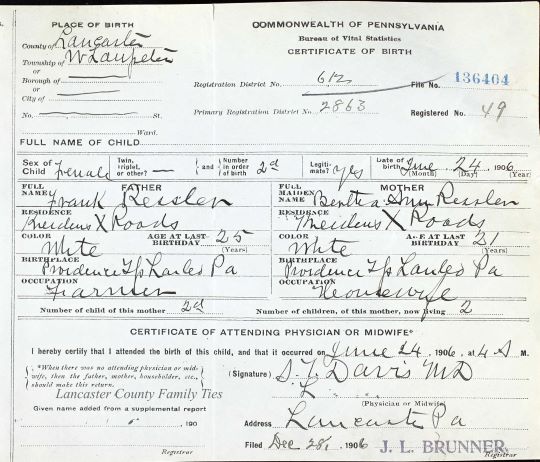 PLACE OF BIRTH
County of Lancaster
Township of W Lampeter
or
Borough of
or
City of
No. St.
Ward.
COMMONWEALTH OF PENNSYLVANIA
Bureau of Vital Statistics
CERTIFICATE OF BIRTH
Registration District No. 612 File No. 136404
Primary Registration District No. 2863 Registered No. 49
FULL NAME OF CHILD
Sex of Child female Twin, triplet, or other? — and Number in order of birth 2d Legitimate? yes Date of birth June 24 1906
(Month) (Day) (Year)
FATHER
FULL NAME Frank Ressler
RESIDENCE
X Roads
COLOR White AGE AT LAST BIRTHDAY 25 (Years)
BIRTHPLACE
Providence Tp Lanc Co Pa
OCCUPATION
Farmer
MOTHER
FULL MAIDEN NAME Bertha Ressler
RESIDENCE
X Roads
COLOR White AGE AT LAST BIRTHDAY 21 (Years)
BIRTHPLACE
Providence Tp Lanc Co Pa
OCCUPATION
Housewife
Number of child of this mother 2d Number of children, of this mother, now living 2
CERTIFICATE OF ATTENDING PHYSICIAN OR MIDWIFE*
I hereby certify that I attended the birth of this child, and that it occurred on June 24 1906, at 4 A M.
*When there was no attending physician or midwife, then the father, mother, householder, etc., should make this return.
(Signature) S. T. Davis MD
(Physician or Midwife)
Lancaster County Family Ties
Given name added from a supplemental report
190
Address Lancaster Pa
Filed Dec 28, 1906 J. L. BRUNNER
Registrar Registrar